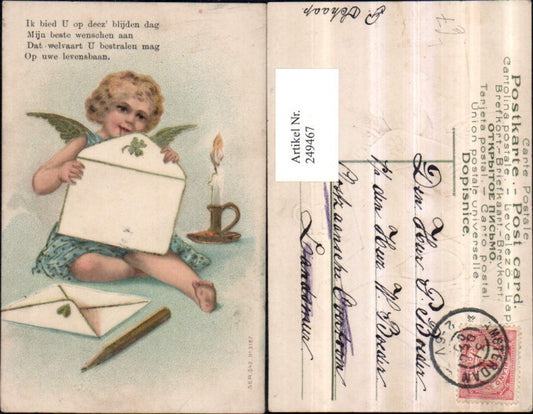 Ik bied U op deez' blijden dag
Mijn beste wenschen aan
Dat welvaart U bestralen mag
Op uwe levensbaan.
SER. 542
Artikel Nr.
249467
P. Schaap
Carte Postale
Postkarte. - Post card.
Cartolina postale. - Levelező-Lap
Brefkort-Briefkaart-Brevkort.
ОТКРЫТОЕ ПИСЬМО
Tarjeta postal. - Carto postal
Union postale universelle.
Dopisnice.
Den Heer P. Boeder
p/a den Heer W. Boeder
AMSTERDAM